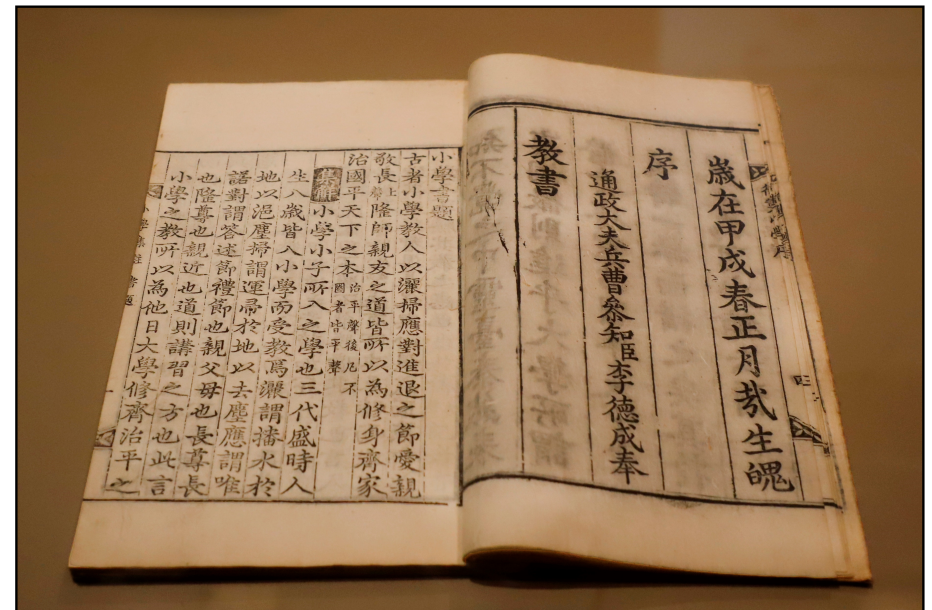 歲在甲戌春正月哉生魄
序
通政大夫兵曹參知臣李德成奉
教書
小學書題
古者小學教人以灑掃應對進退之節愛親
敬長上聲隆師親友之道皆所以為修身齊家
治國平天下之本治平聲後凡不國者皆平聲
集解小學小子所入之學也三代盛時人
生八歲皆入小學而受教焉灑謂播水於
地以浥塵掃謂運帚於地以去塵應謂唯
諾對謂答述節禮節也親父母也長尊長
也隆尊也親近也道則講習之方也此言
小學之教所以為他日大學修齊治平之
小學集註 書題